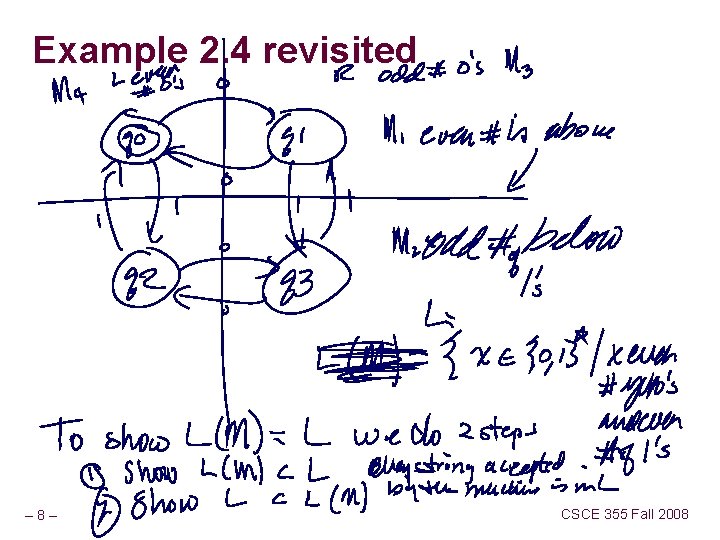 Example 2.4 revisited
M4 L even # 0's R odd # 0's M3
0
q0 q1 M1 even # 1s above
0
1 1 1 1
0
M2 odd # of below
1's
q2 q3
0
L =
L(M) { x ∈ {0,1}* / x even
# zero's
and even
# of 1's
To show L(M) = L we do 2 steps
1) Show L(M) ⊂ L every string accepted
by the machine is in L
2) Show L ⊂ L(M)
– 8 –
CSCE 355 Fall 2008